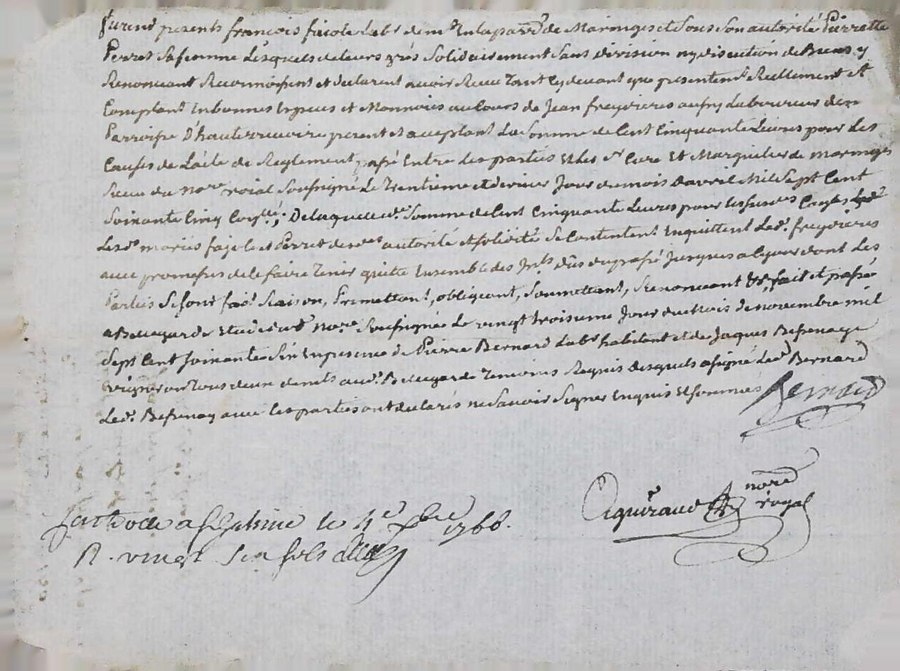 furent presents françois fajole Lab.r dem.t En la par.sse de Maringes et Sous Son autorité Pierrette
Perrot Sa femme Lesquels de leurs grés Solidairement Sans division ny discution de Biens y
Renonçant Reconnoissent et declarent avoir Receu Tant Cy devant que presentem.t Reellement et
Comptant En bonnes Especes et Monnoies au Cours de Jean freydieres aussy Laboureur de la
Parroisse d'hauterivoire present et acceptant La Somme de Cent Cinquante Livres pour Les
Causes de L'acte de Reglement passé Entre Les parties Et Les Sr Curé Et Marguiliers de maringes
Receu du no.re roial Soussigné Le Trentieme et dernier Jour du mois d'avril Mil Sept Cent
Soixante Cinq De laquelle d.e Somme de Cent Cinquante Livres pour les Susd.es Causes
Les d. mariés fajole et Perrot des.es autorité et Solidité Se Contentent Enquittent Led. freydieres
avec promesses de le faire Tenir quitte Ensemble des Int.ts dus du passé Jusques a ce jour dont Les
Parties Se font fait Raison, Promettant, obligeant, Soumettant, Renonçant &c. fait et passé
a Bellegarde Etude du d. no.re Soussigné Le vingt troisieme Jour du Mois de novembre mil
Sept Cent Soixante Six En presence de Pierre Bernard Lab.r habitant et de Jaques Bessenay
vigneron Tous deux dem.ts aud. Bellegarde Temoins Requis Desquels a signé Led. Bernard
Led. Bessenay avec les parties ont declarés ne Savoir Signer Enquis Et Sommés
Bernard
Eiguiraud no.re royal
le 4.e Xbre 1766.
R. vingt Six sols